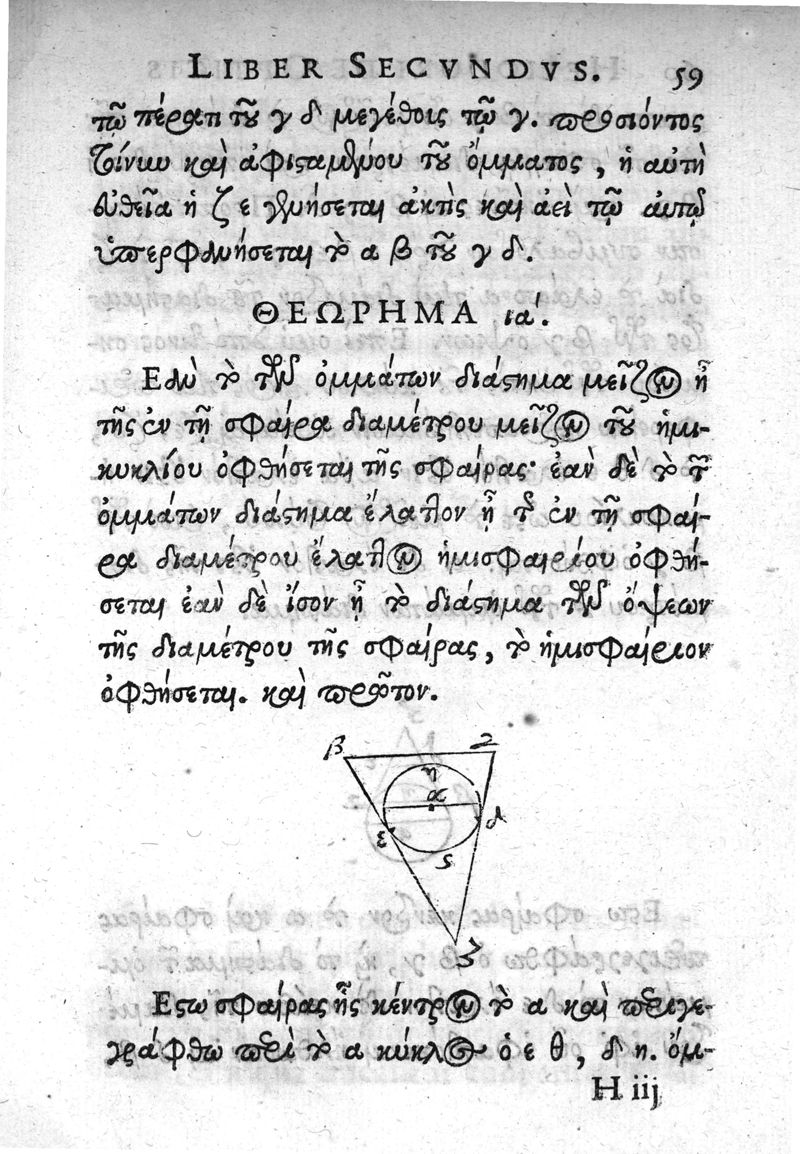 LIBER SECVNDVS. 59
τῷ πέρατι τοῦ γ δ μεγέθοις τῷ γ. προσιόντος
τοίνυν καὶ ἀφισταμένου τοῦ ὄμματος, ἡ αὐτὴ
εὐθεῖα ἡ ζ ε γενήσεται ἀκτὶς καὶ ἀεὶ τῷ αὐτῷ
ὑπερφανήσεται τὸ α β τοῦ γ δ.
ΘΕΩΡΗΜΑ ια΄.
Εὰν τὸ τῶν ὀμμάτων διάστημα μεῖζον ᾖ
τῆς ἐν τῇ σφαίρα διαμέτρου μεῖζον τοῦ ἡμι-
κυκλίου ὀφθήσεται τῆς σφαίρας· ἐὰν δὲ τὸ τῶν
ὀμμάτων διάστημα ἔλαττον ᾖ τῆς ἐν τῇ σφαί-
ρα διαμέτρου ἔλαττον ἡμισφαιρίου ὀφθή-
σεται ἐὰν δὲ ἴσον ᾖ τὸ διάστημα τῶν ὄψεων
τῆς διαμέτρου τῆς σφαίρας, τὸ ἡμισφαίριον
ὀφθήσεται. καὶ πρῶτον.
β
η
α
δ
ε
ς
ζ
Εστω σφαίρας ἧς κέντρον τὸ α καὶ περιγε-
γράφθω περὶ τὸ α κύκλος ὁ ε θ, δ η. ὀμ-
H iij